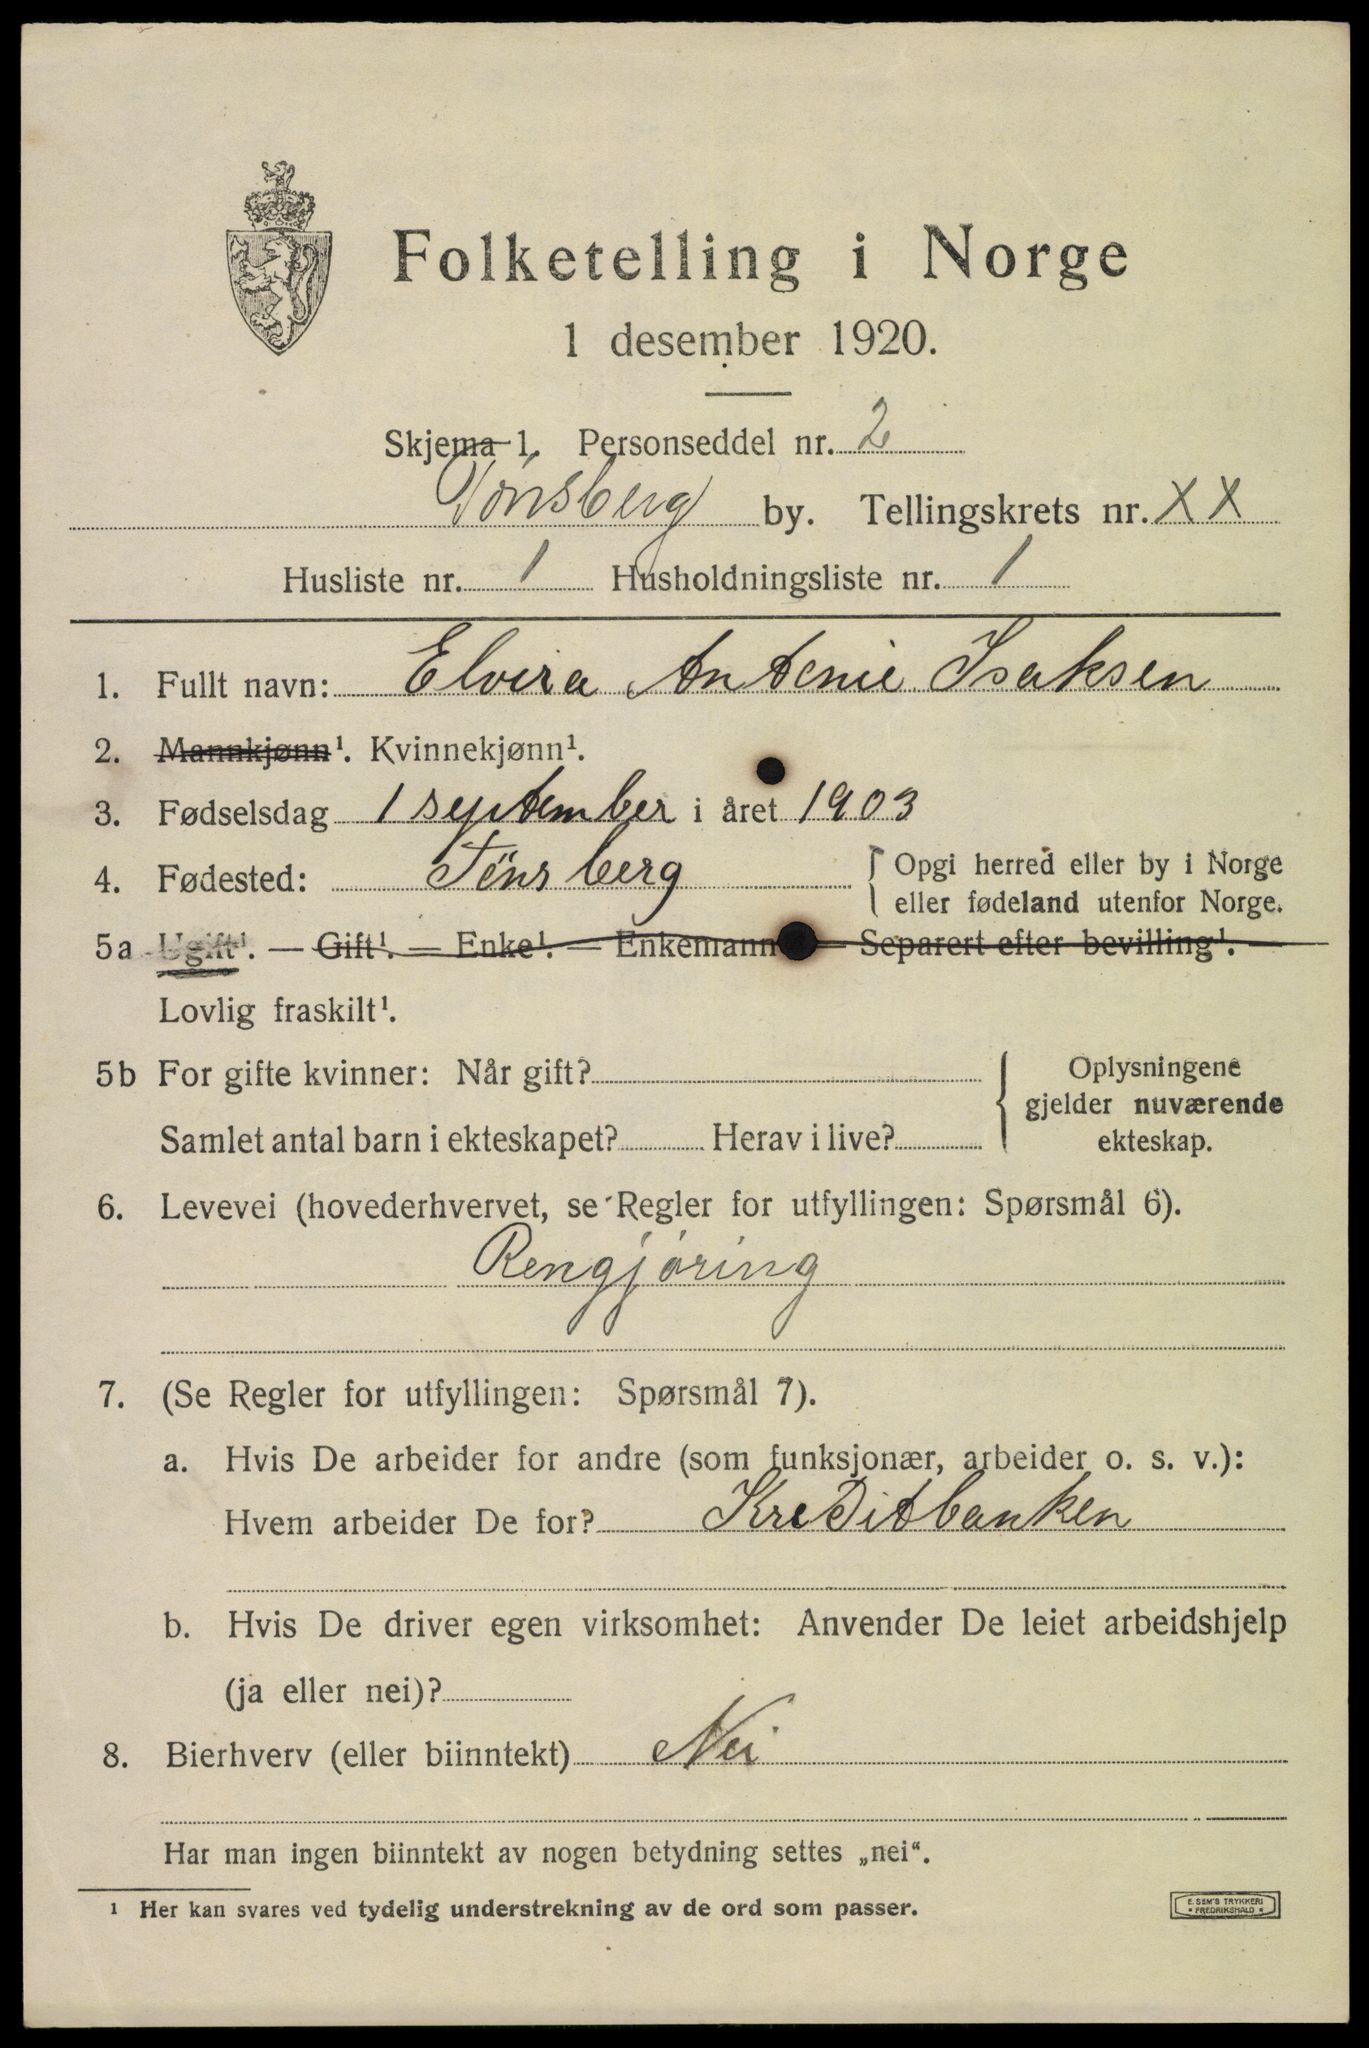 Folketelling i Norge
1 desember 1920.
Skjema 1. Personseddel nr. 2
Tønsberg by. Tellingskrets nr. XX
Husliste nr. 1 Husholdningsliste nr. 1
1. Fullt navn: Elvira Antonie Isaksen
2. Mannkjønn¹. Kvinnekjønn¹.
3. Fødselsdag 1 september i året 1903
4. Fødested: Tönsberg { Opgi herred eller by i Norge
eller fødeland utenfor Norge.
5a Ugift¹. — Gift¹. — Enke¹. — Enkemann — Separert efter bevilling¹. —
Lovlig fraskilt¹.
5b For gifte kvinner: Når gift? { Oplysningene
gjelder nuværende
Samlet antal barn i ekteskapet? Herav i live? ekteskap.
6. Levevei (hovederhvervet, se Regler for utfyllingen: Spørsmål 6).
Rengjøring
7. (Se Regler for utfyllingen: Spørsmål 7).
a. Hvis De arbeider for andre (som funksjonær, arbeider o. s. v.):
Hvem arbeider De for? Kreditbanken
b. Hvis De driver egen virksomhet: Anvender De leiet arbeidshjelp
(ja eller nei)?
8. Bierhverv (eller biinntekt) Nei
Har man ingen biinntekt av nogen betydning settes „nei“.
¹ Her kan svares ved tydelig understrekning av de ord som passer.
E. SEM'S TRYKKERI
FREDRIKSHALD